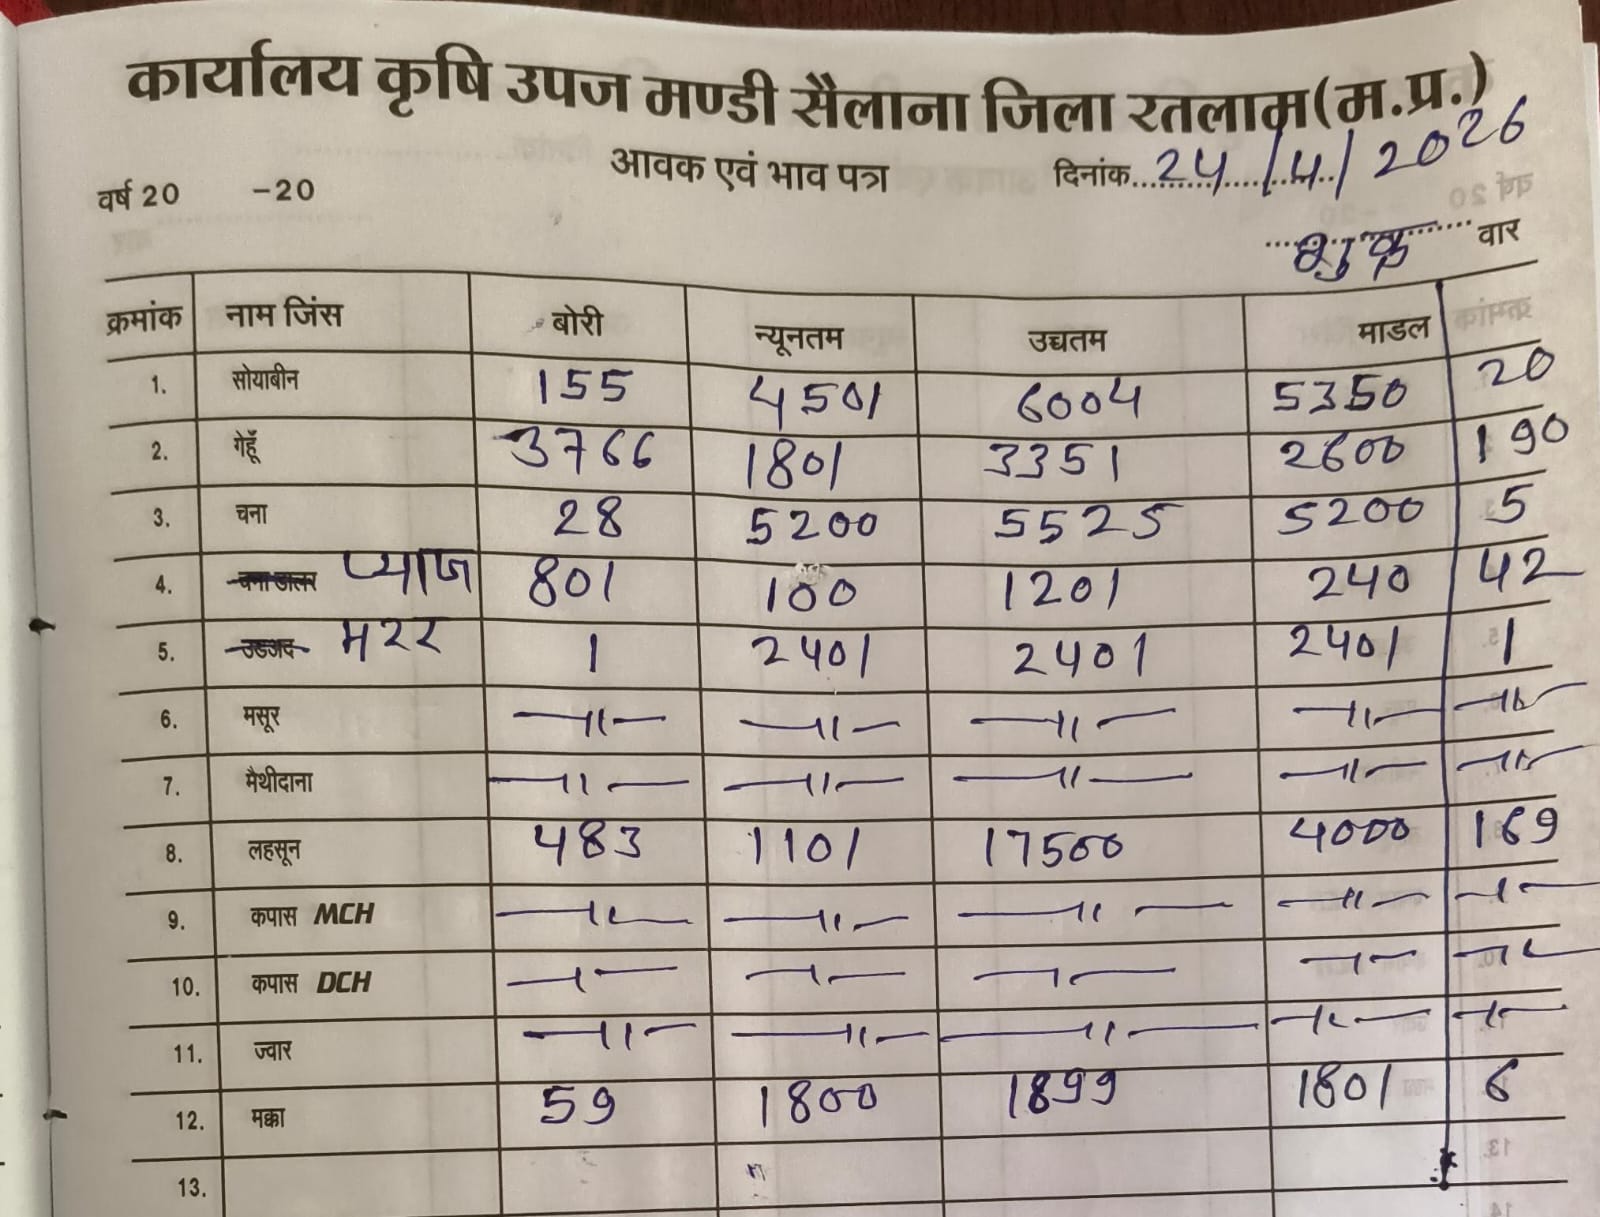 कार्यालय कृषि उपज मण्डी सैलाना जिला रतलाम(म.प्र.)
आवक एवं भाव पत्र दिनांक 24/4/2026
वर्ष 20 -20
शुक्र वार
क्रमांक नाम जिंस बोरी न्यूनतम उच्चतम माडल
1. सोयाबीन 155 4501 6004 5350 20
2. गेहूँ 3766 1801 3351 2600 190
3. चना 28 5200 5525 5200 5
4. चना डालर प्याज 801 100 1201 240 42
5. उडअद मटर 1 2401 2401 2401 1
6. मसूर —॥— —॥— —॥— —॥— —॥—
7. मैथीदाना —॥— —॥— —॥— —॥— —॥—
8. लहसून 483 1101 17500 4000 169
9. कपास MCH —॥— —॥— —॥— —॥— —॥—
10. कपास DCH —॥— —॥— —॥— —॥— —॥—
11. ज्वार —॥— —॥— —॥— —॥— —॥—
12. मक्का 59 1800 1899 1801 6
13.